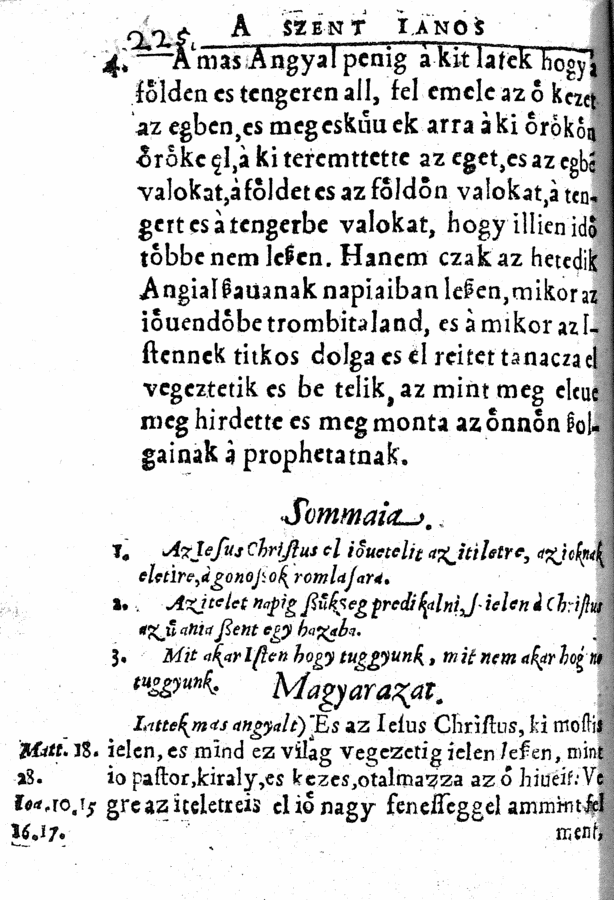 225.
A SZENT IANOS
4. A mas Angyal penig à kit latek hogy à
főlden es tengeren all, fel emele az ő kezet
az egben, es meg eskűuek arra à ki őrőkőn
őrőke ęl, à ki teremttette az eget, es az egbē
valokat, à főldet es az főldőn valokat, à ten-
gert es à tengerbe valokat, hogy illien idő
tőbbe nem leßen. Hanem czak az hetedik
Angial ßauanak napiaiban leßen, mikor az
iőuendőbe trombitaland, es à mikor az I-
ſtennek titkos dolga es el reitet tanacza el
vegeztetik es be telik, az mint meg eleue
meg hirdette es meg monta az őnnőn ßol-
gainak à prophetatnak.
Sommaia.
1. Az Ieſus Chriſtus el iőuetelit az itiletre, az ioknak
eletire, à gonoſzok romlaſara.
2. Az itelet napig ßűkſeg predikalni, ielen à Chriſtus
az ű ania ßent egy hazaba.
3. Mit akar Iſten hogy tuggyunk, mit nem akar hogj ne
tuggyunk.
Magyarazat.
Lattek mas angyalt) Es az Ieſus Chriſtus, ki moſtis
Matt. 18. ielen, es mind ez vilâg vegezetig ielen leſen, mint
28. io paſtor, kiraly, es kezes, otalmazza az ő hiueit: Ve
Ioa. 10. 15 gre az iteletreis el iő nagy feneſſeggel ammint fel
16. 17. ment,